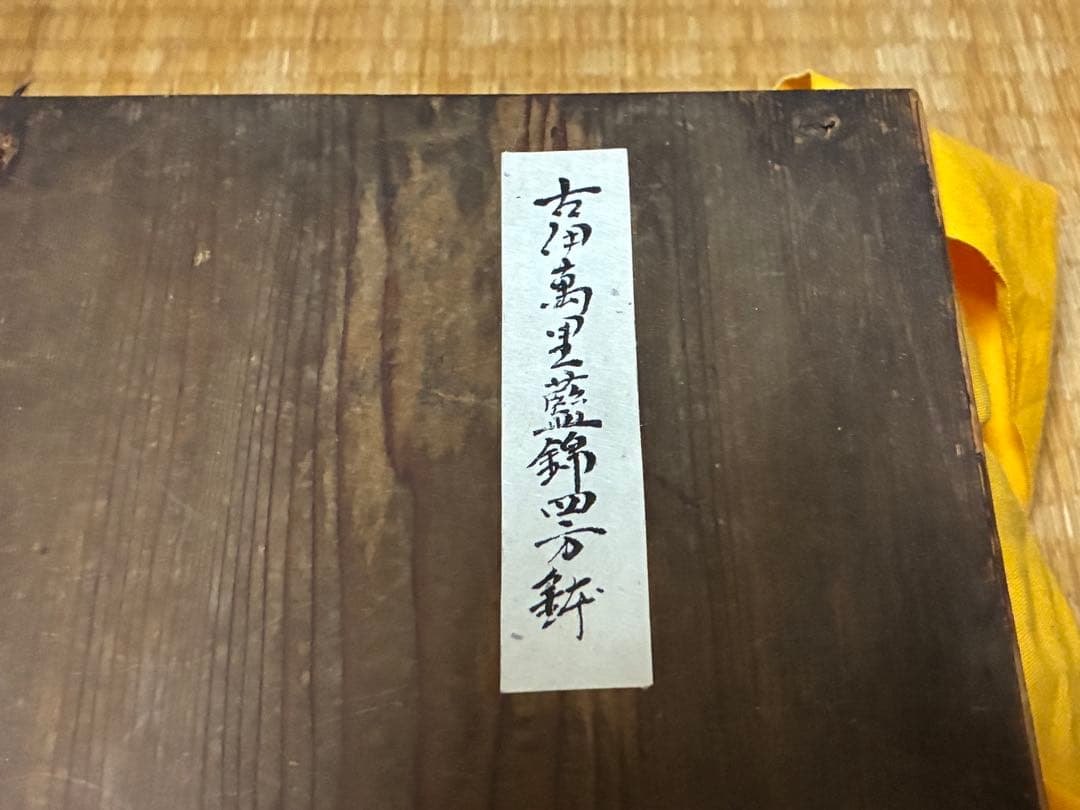 古伊萬里藍錦四方鉢